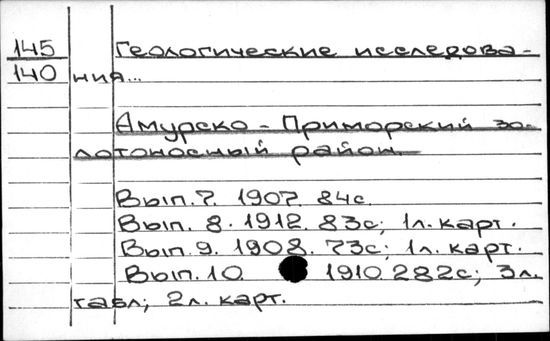 145 Геологические исследова-
140 ния...
Амурско - Приморский зо-
лотоносный район.
Вып. 7. 1907. 84с.
Вып. 8. 1912. 83с; 1л. карт.
Вып. 9. 1908. 73с; 1л. карт.
Вып. 10. 1910. 282с; 3л.
табл; 2л. карт.